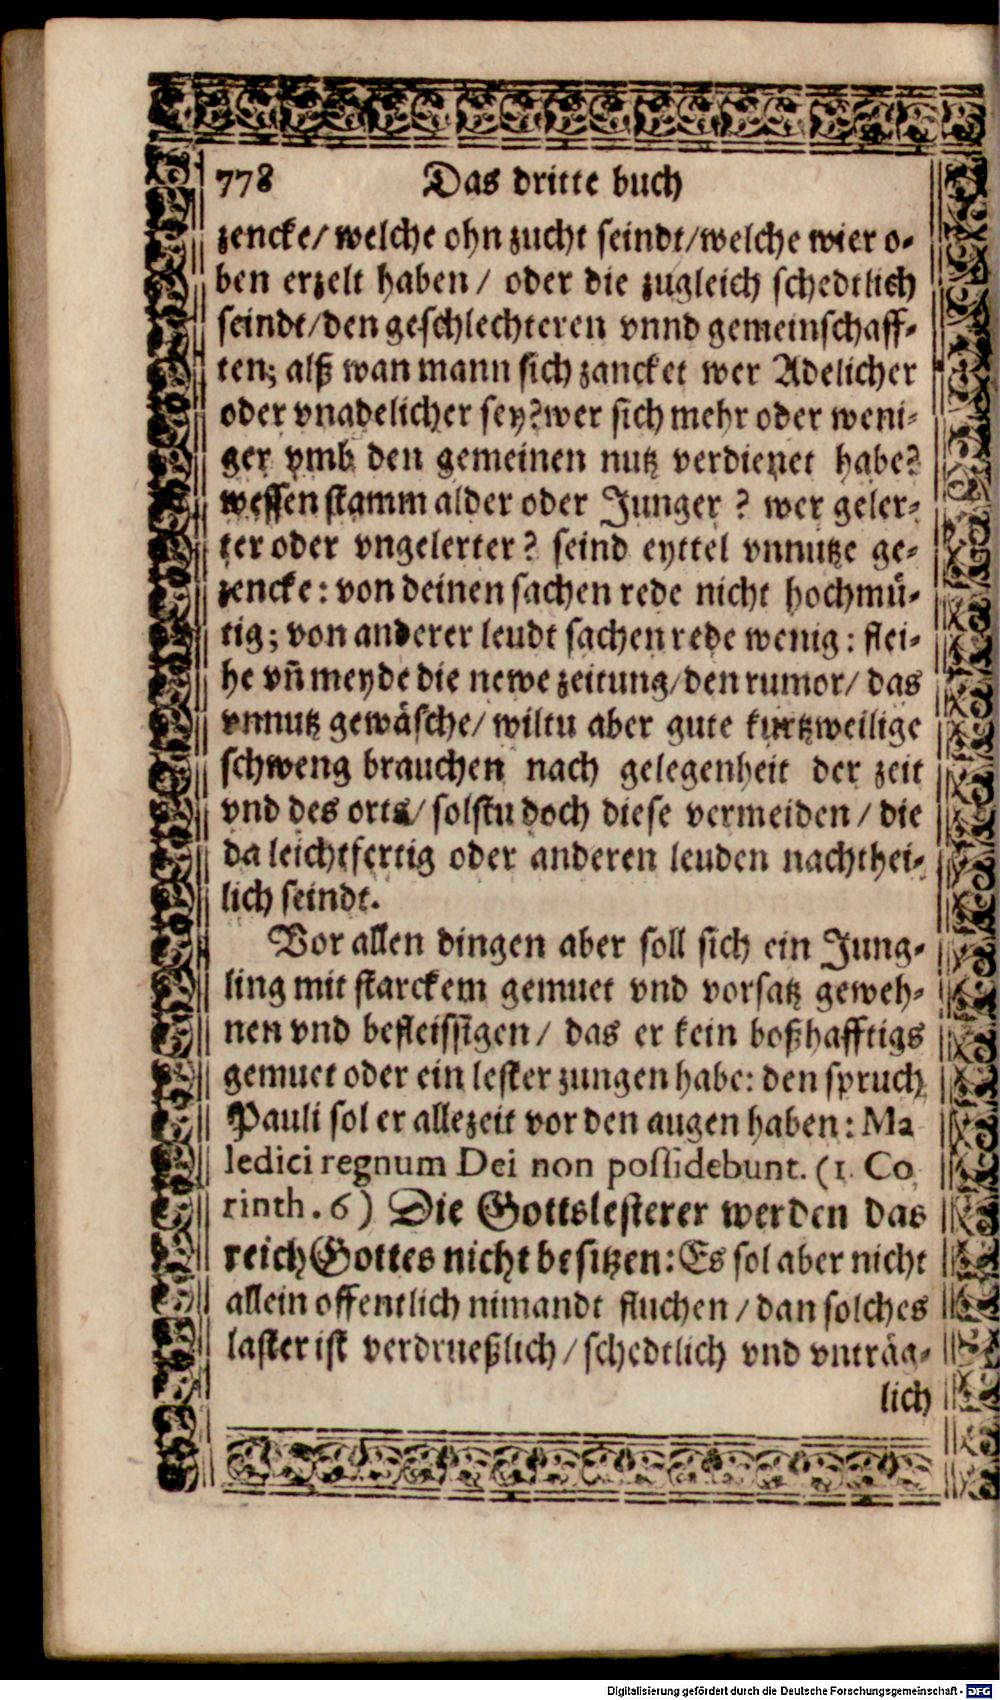 778 Das dritte buch
zencke/ welche ohn zucht seindt/welche wier o-
ben erzelt haben / oder die zugleich schedtlich
seindt/den geschlechteren vnnd gemeinschaff-
ten; alß wan mann sich zancket wer Adelicher
oder vnadelicher sey? wer sich mehr oder weni-
ger vmb den gemeinen nutz verdienet habe?
wessen stamm alder oder Junger ? wer geler-
ter oder vngelerter ? seind eyttel vnnutze ge-
zencke: von deinen sachen rede nicht hochmü-
tig; von anderer leudt sachen rede wenig: flei-
he vñ meyde die newe zeitung/den rumor/ das
vnnutz gewäsche/ wiltu aber gute kurtzweilige
schweng brauchen nach gelegenheit der zeit
vnd des orts/ solstu doch diese vermeiden / die
da leichtfertig oder anderen leuden nachthei-
lich seindt.
Vor allen dingen aber soll sich ein Jung-
ling mit starckem gemuet vnd vorsatz geweh-
nen vnd befleissigen / das er kein boßhafftigs
gemuet oder ein lester zungen habe: den spruch
Pauli sol er allezeit vor den augen haben: Ma
ledici regnum Dei non possidebunt. (1. Co
rinth. 6) Die Gottslesterer werden das
reich Gottes nicht besitzen: Es sol aber nicht
allein offentlich nimandt fluchen / dan solches
laster ist verdrueßlich / schedtlich vnd vnträg-
lich
Digitalisierung gefördert durch die Deutsche Forschungsgemeinschaft - DFG